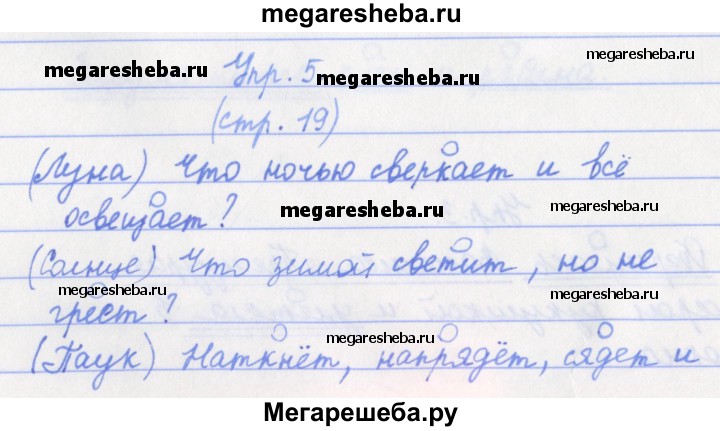 megaresheba.ru
megaresheba.ru Упр. 5 megaresheba.ru megaresheba.ru
(стр. 19)
(Луна) Что ночью сверкает и всё
освещает? megaresheba.ru megaresheba.ru
(Солнце) Что зимой светит, но не
греет? megaresheba.ru
(Паук) Наткнёт, напрядёт, сядет и
megaresheba.ru megaresheba.ru
Мегарешеба.ру